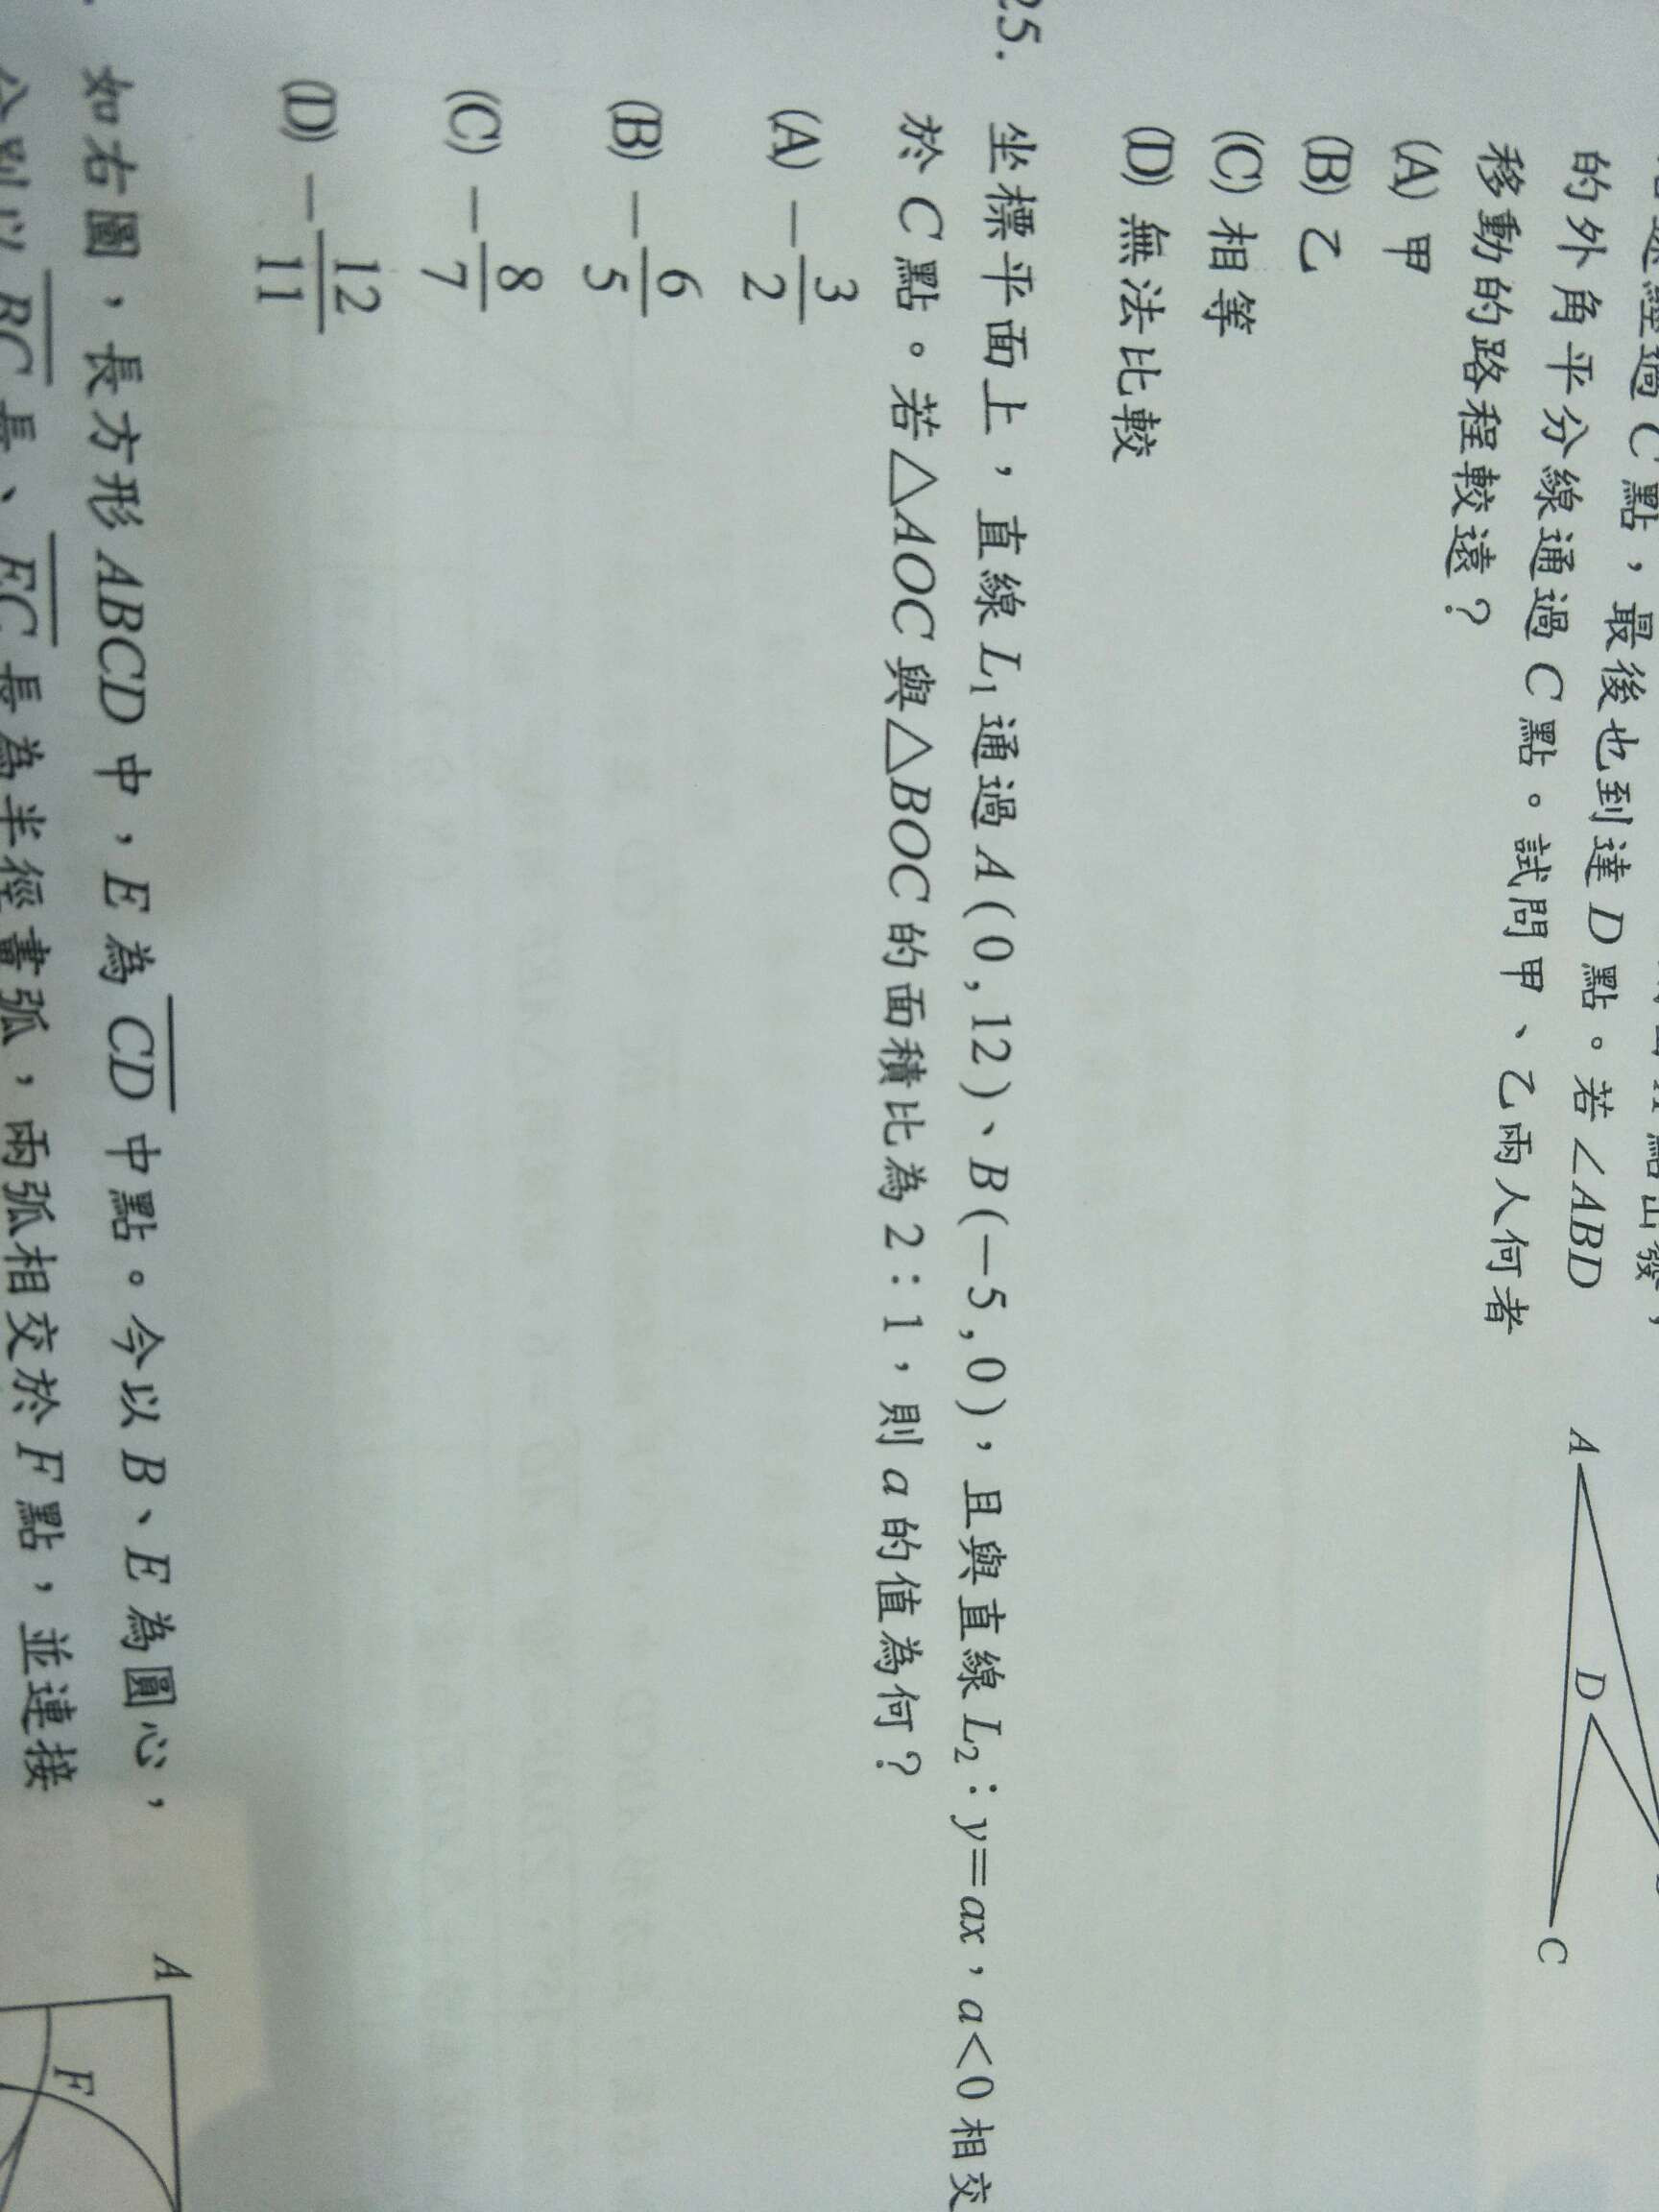 的外角平分線通過 C 點。試問甲、乙兩人何者
移動的路程較遠？
(A) 甲
(B) 乙
(C) 相等
(D) 無法比較
A
D
C
25. 坐標平面上，直線 L₁ 通過 A(0,12)、B(−5,0)，且與直線 L₂：y=ax，a<0 相交
於 C 點。若△AOC 與△BOC 的面積比為 2：1，則 a 的值為何？
(A) −3/2
(B) −6/5
(C) −8/7
(D) −12/11
如右圖，長方形 ABCD 中，E 為 CD 中點。今以 B、E 為圓心，
分別以 BC 長、EC 長為半徑畫弧，兩弧相交於 F 點，並連接
A
F